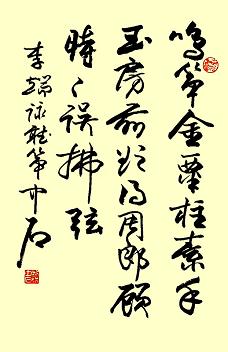 鸣筝金粟柱素手
玉房前欲得周郎顾
时々误拂弦
李端咏听筝中石